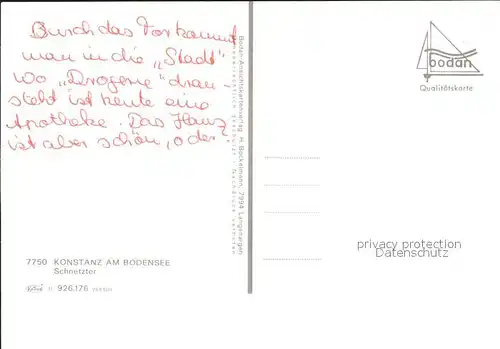 Durch das Tor kommt
man in die „Stadt"
wo „Drogerie" dran-
steht ist heute eine
Apotheke. Das Haus
ist aber schön, oder
7750 KONSTANZ AM BODENSEE
Schnetztor
926.176
Bodan-Ansichtskartenverlag H. Bockelmann, 7994 Langenargen
bodan
Qualitätskarte
privacy protection
Datenschutz